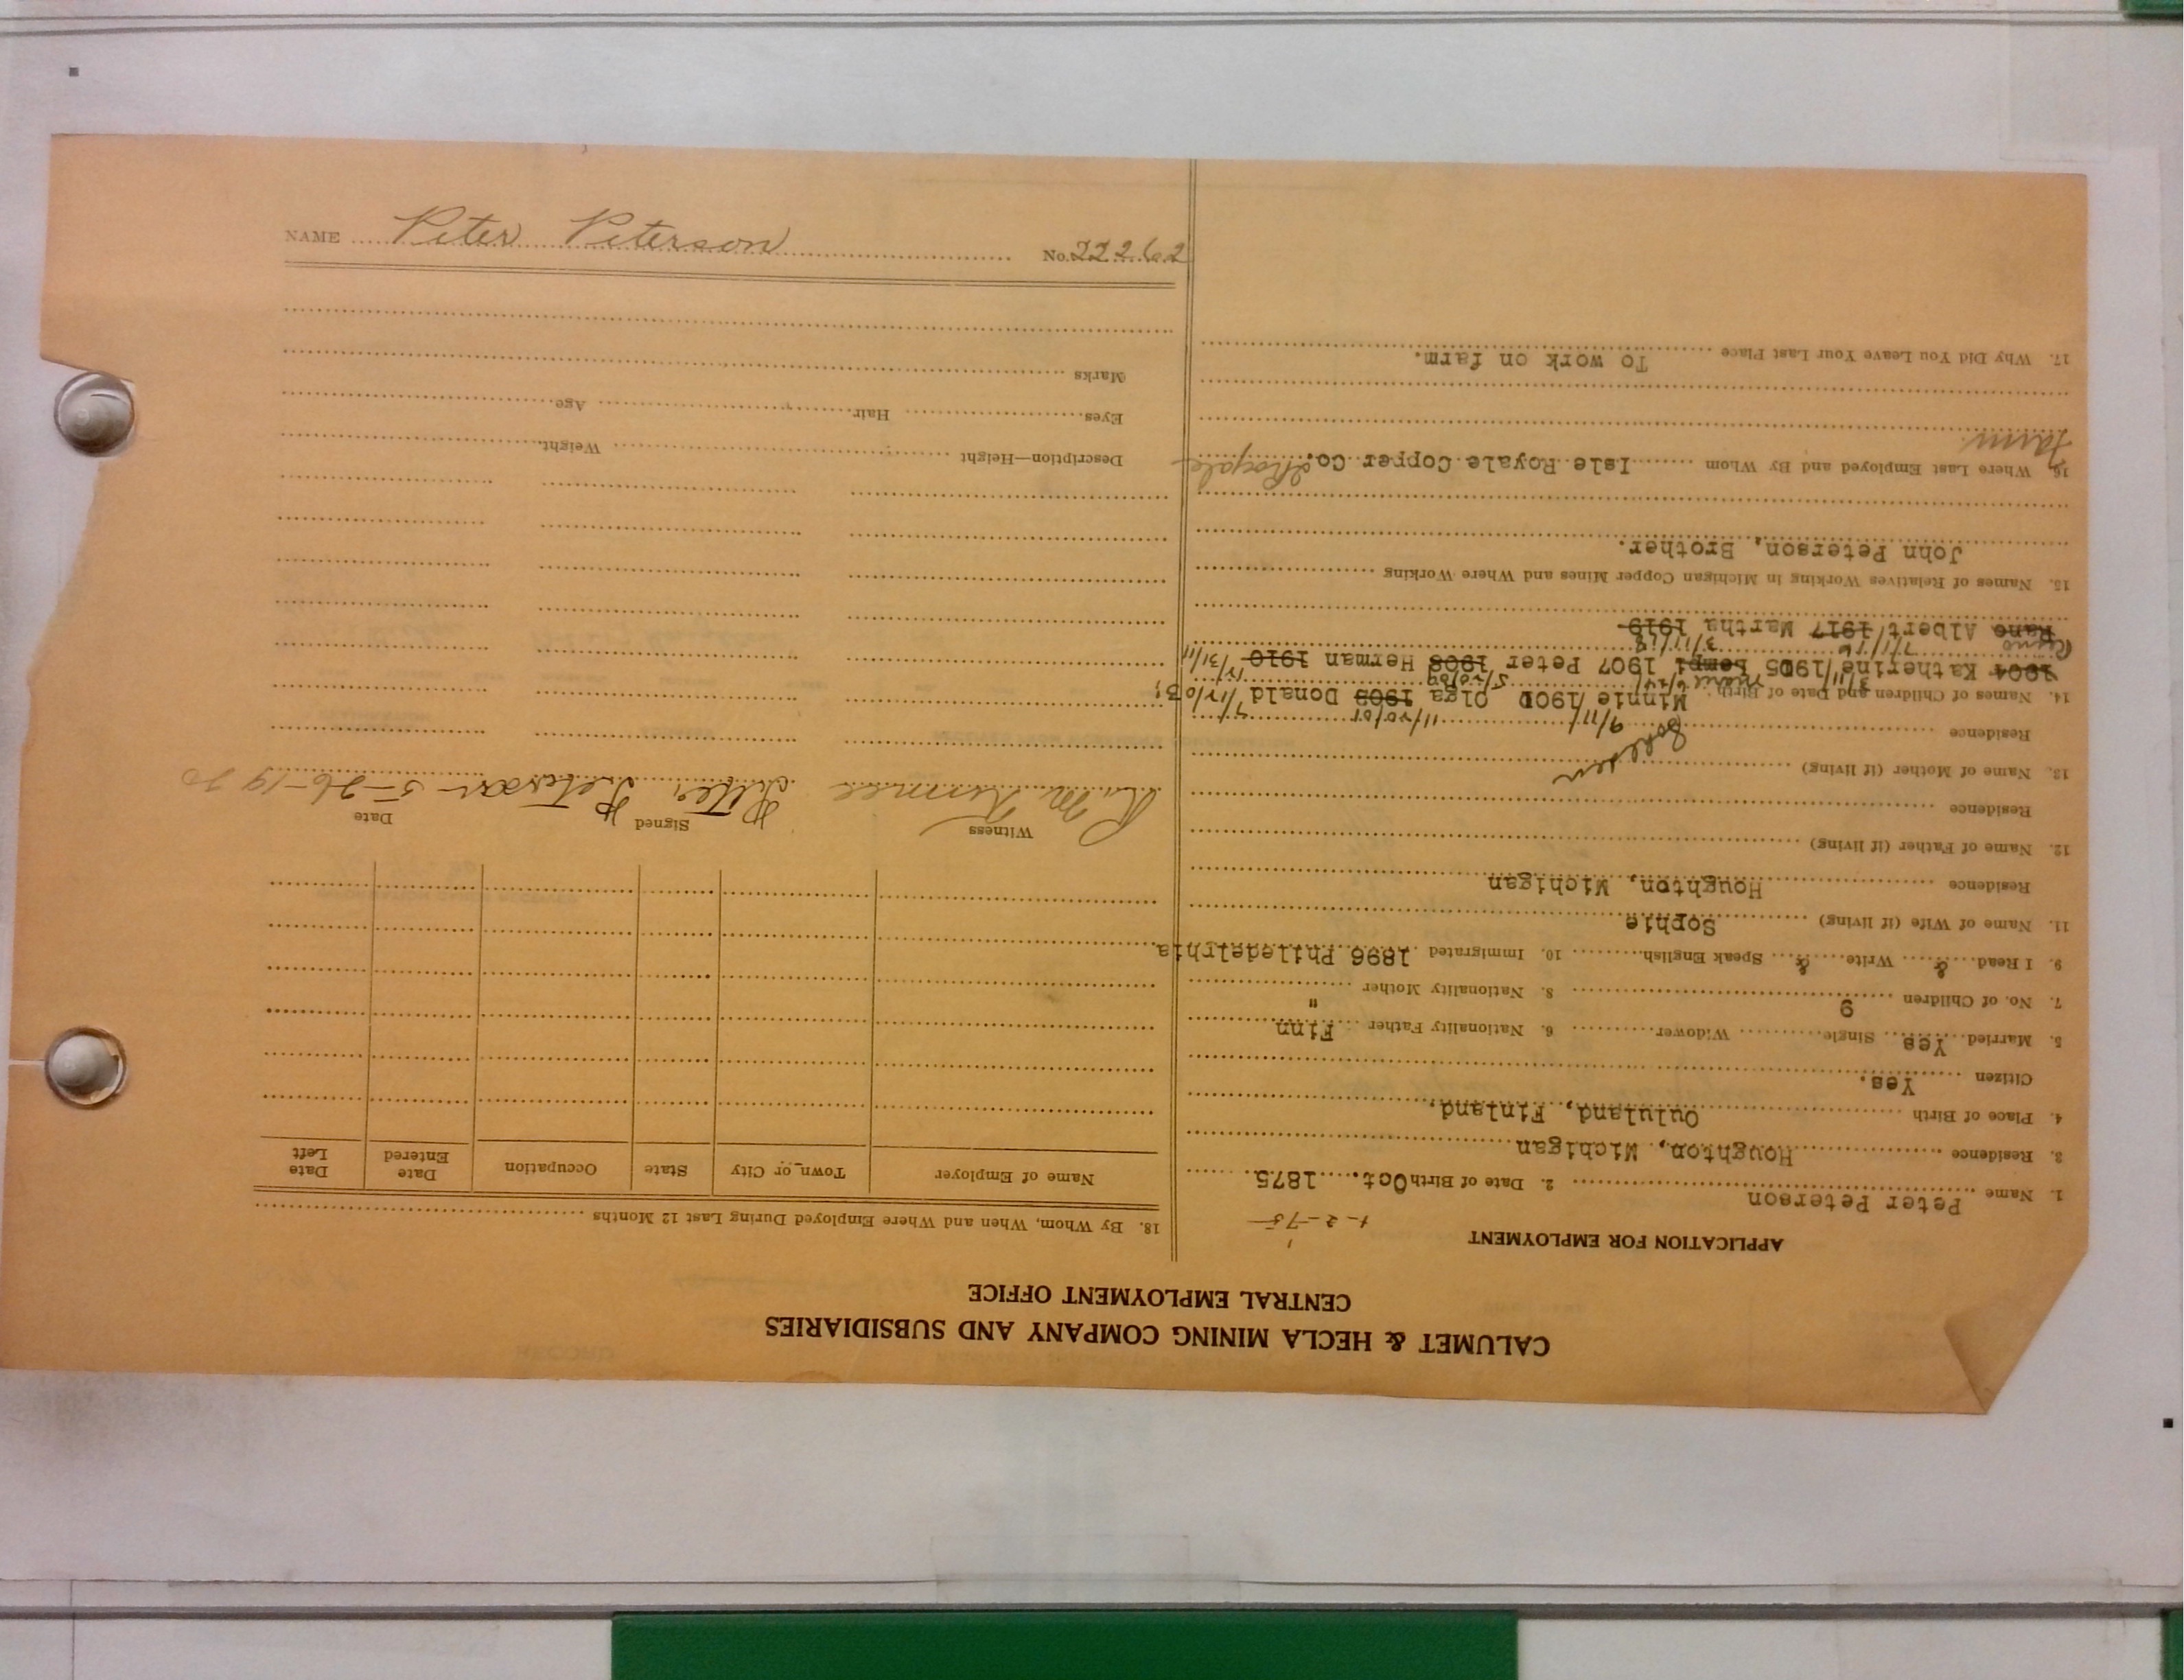 CALUMET & HECLA MINING COMPANY AND SUBSIDIARIES
CENTRAL EMPLOYMENT OFFICE
APPLICATION FOR EMPLOYMENT
1. Name Peter Peterson 2. Date of Birth Oct. 1875.
3. Residence Houghton, Michigan
4. Place of Birth Oululand, Finland.
Citizen Yes.
5. Married Yes Single Widower 6. Nationality Father Finn
7. No. of Children 9 8. Nationality Mother "
9. I Read & Write & Speak English 10. Immigrated 1896 Philadelphia
11. Name of Wife (if living) Sophie
Residence Houghton, Michigan
12. Name of Father (if living)
Residence
13. Name of Mother (if living)
Residence
9/11/ 11/20/01 7/12/03
14. Names of Children and Date of Birth. Minnie/1900 Olga 1902 Donald
1904 Katherine/1905 1907 Peter 1908 Herman 1910
Reino 7/11/16 3/11/18
Albert/1917 Martha 1919
15. Names of Relatives Working in Michigan Copper Mines and Where Working
John Peterson, Brother.
16. Where Last Employed and By Whom Isle Royale Copper Co.
Farm
17. Why Did You Leave Your Last Place To work on farm.
18. By Whom, When and Where Employed During Last 12 Months
Name of Employer Town or City State Occupation Date Entered Date Left
Witness Signed Date
Peter Peterson 5-26-1920
Description—Height Weight
Eyes Hair Age
Marks
NAME Peter Peterson No. 22262